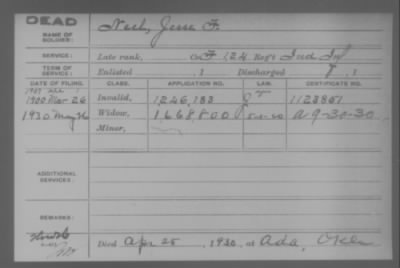 DEAD
NAME OF SOLDIER: Nash, Jesse F.
SERVICE: Late rank, Co. F 124 Reg't Ind Inf
TERM OF SERVICE: Enlisted , 1 Discharged , 1
DATE OF FILING. CLASS. APPLICATION NO. LAW. CERTIFICATE NO.
1900 Mar 26 Invalid, 1,246,183 1123851
1930 May 26 Widow, 1,668,800 A-9-30-30
Minor,
ADDITIONAL SERVICES:
REMARKS:
Died Apr 25, 1930, at Ada, Okla